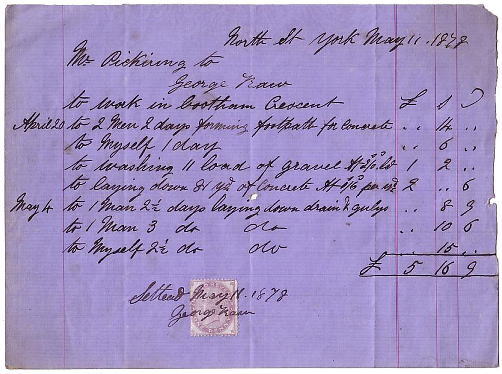 North St York May 11. 1878
Mr Pickiring to
George Kaw
to work in Bootham Crescent £ s D
April 20 to 2 Men 2 days forming footpath for Concrete .. 14 ..
to Myself 1 day .. 6 ..
to washing 11 load of gravel At 2/0 ld 1 2 ..
to laying down of Concrete At per yd 2 .. 6
May 4 to 1 Man 2½ days laying down drain & gulys .. 8 9
to 1 Man 3 do do .. 10 6
to Myself 2½ do do .. 15 ..
£ 5 16 9
Setteed May 11. 1878
George Kaw